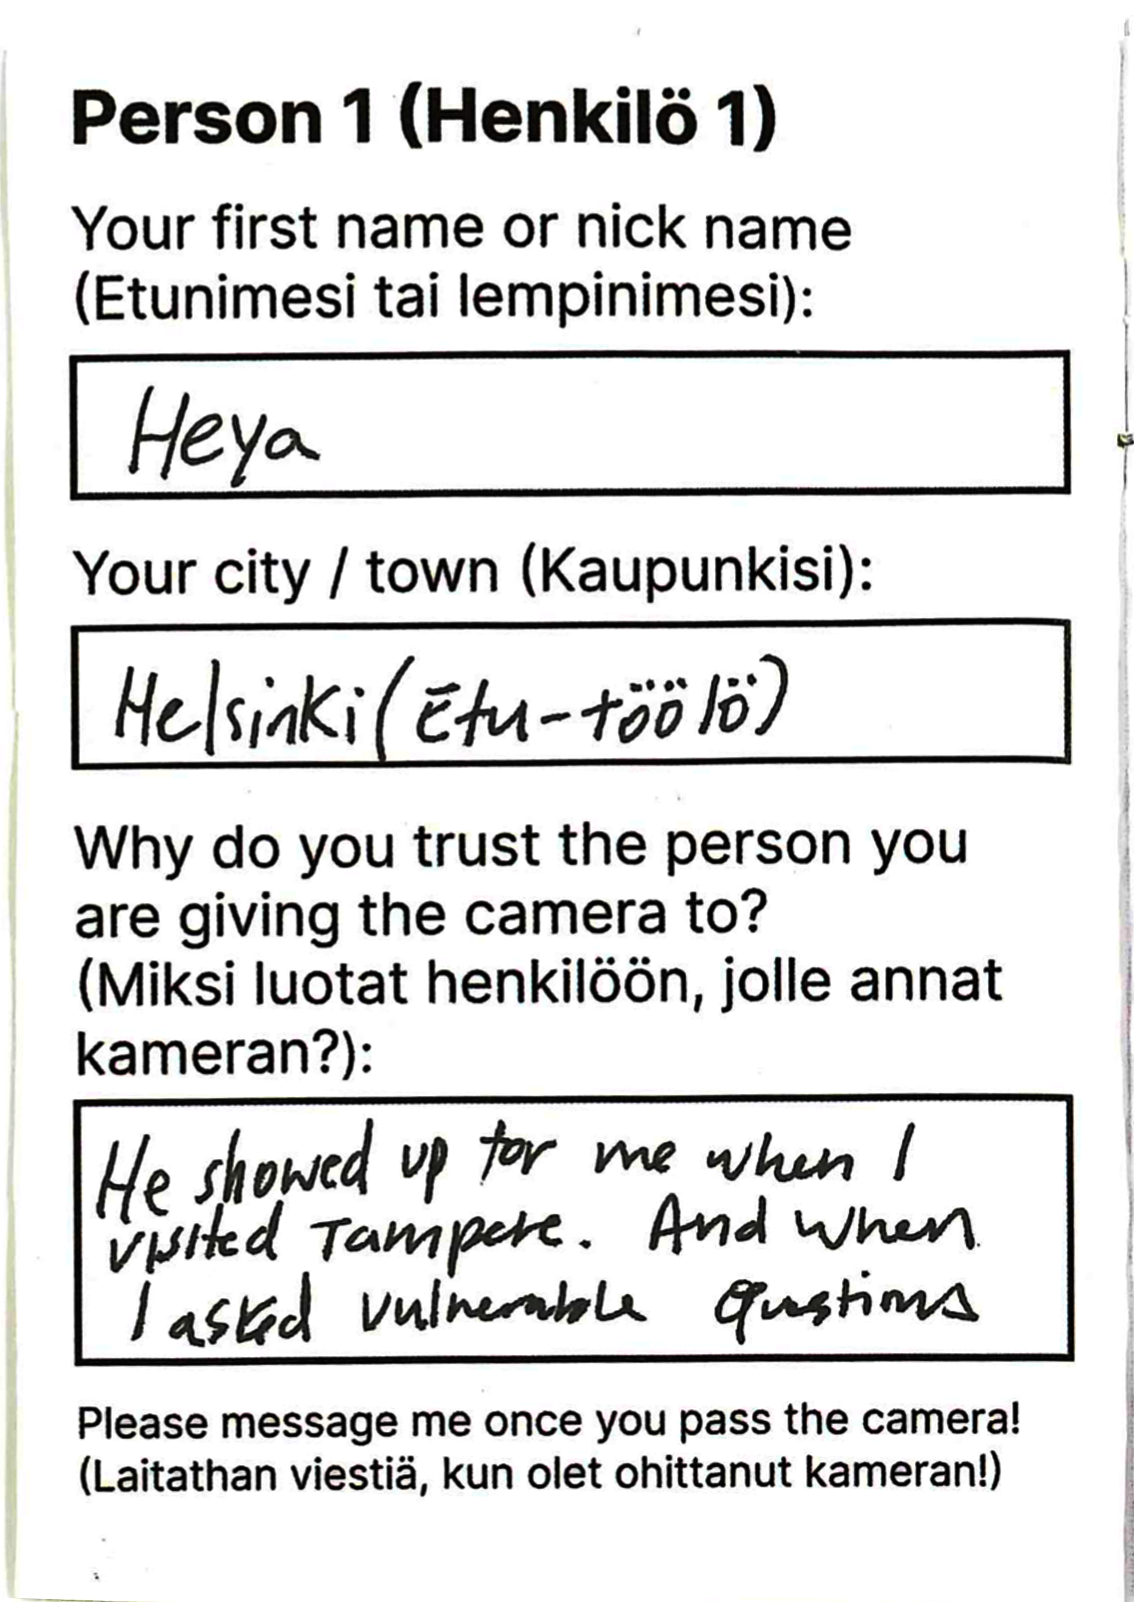 Person 1 (Henkilö 1)
Your first name or nick name
(Etunimesi tai lempinimesi):
Heya
Your city / town (Kaupunkisi):
Helsinki (Etu-töölö)
Why do you trust the person you
are giving the camera to?
(Miksi luotat henkilöön, jolle annat
kameran?):
He showed up for me when I
visited Tampere. And when
I asked vulnerable questions
Please message me once you pass the camera!
(Laitathan viestiä, kun olet ohittanut kameran!)